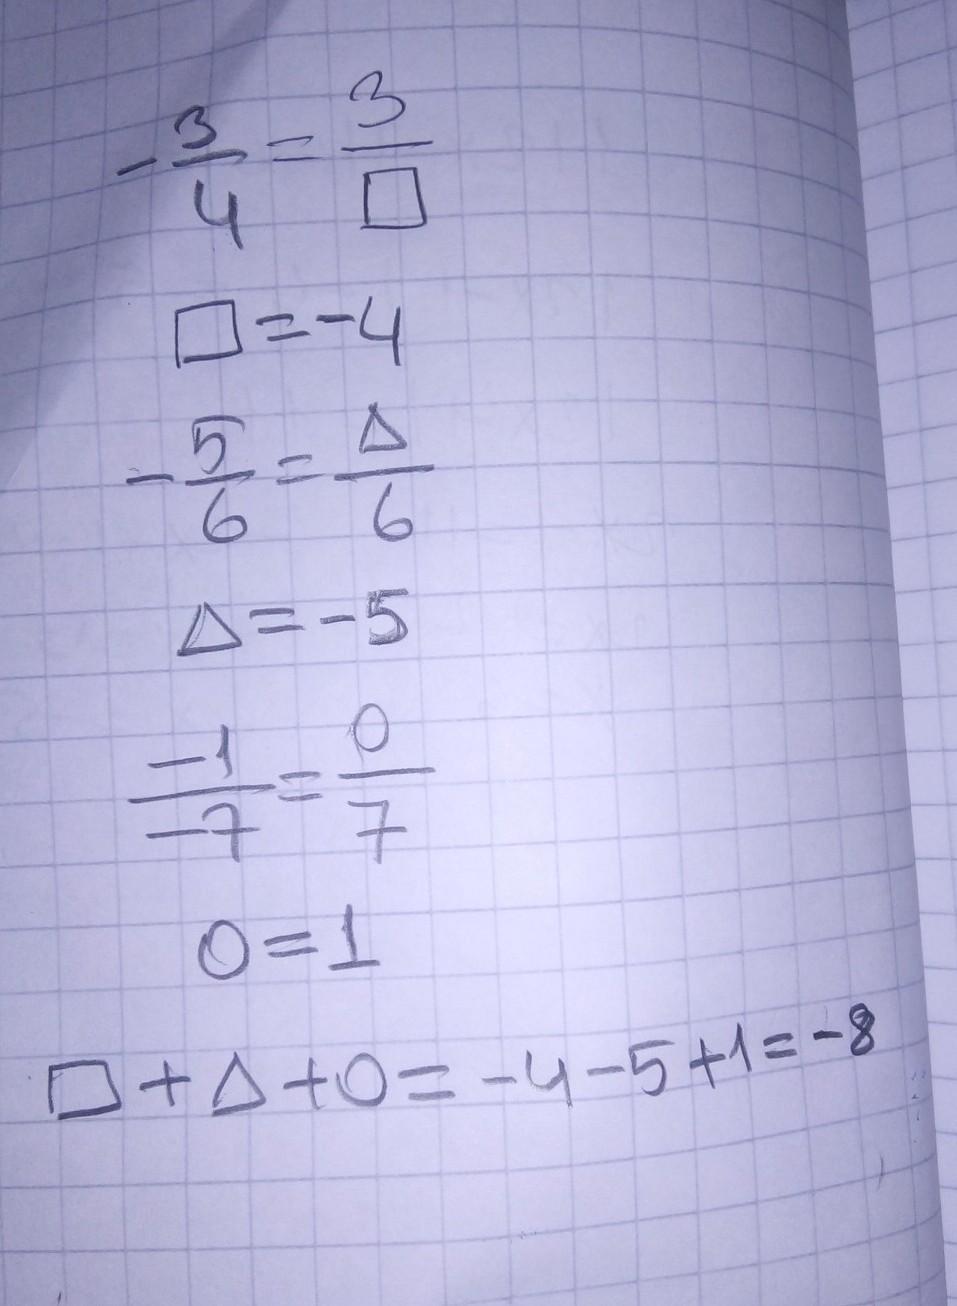 -3/4 = 3/□
□ = -4
-5/6 = △/6
△ = -5
-1/-7 = O/7
O = 1
□ + △ + O = -4 - 5 + 1 = -8